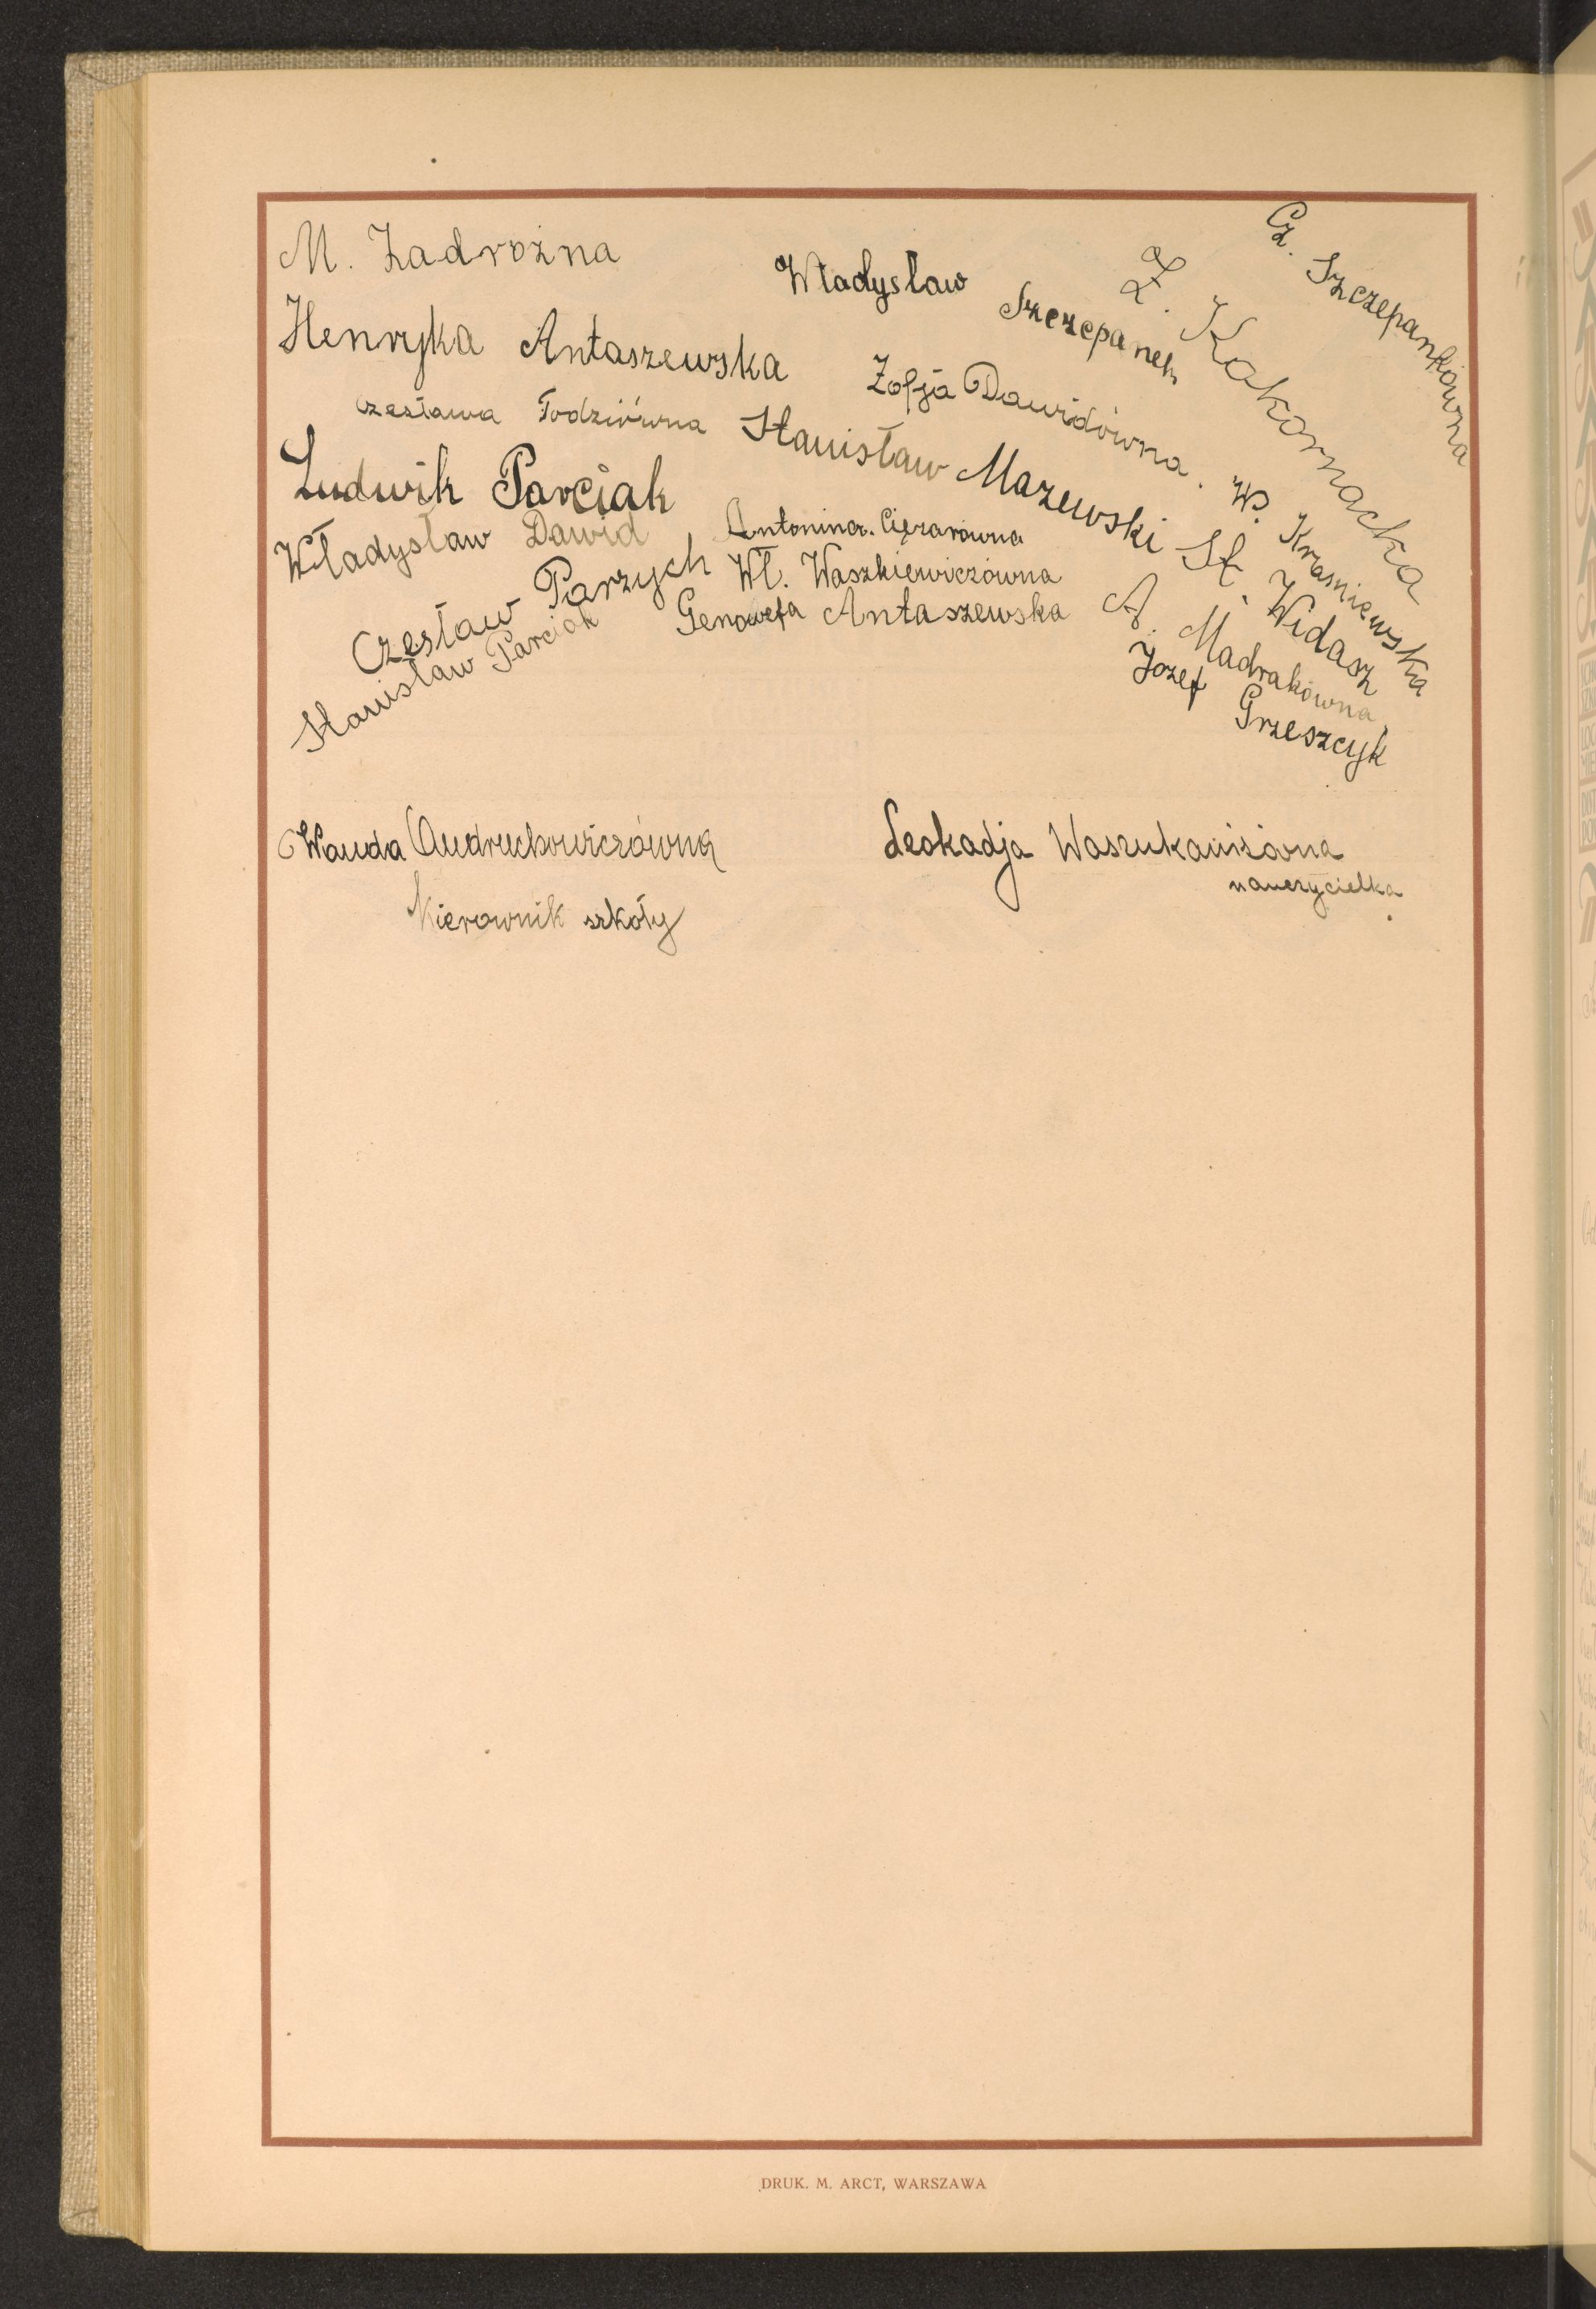 M. Zadrożna
Władysław Szczepanek
Cz. Szczepankówna
Z. Kakornacka
Henryka Antaszewska
Zofja Dawidówna.
W. Kraśniewska
Czesława Todziówna
Stanisław Mazewski
St. Widasz
Ludwik Parciak
Władysław Dawid
Antonina Ciężarówna
Czesław Parzych
Wł. Waszkiewiczówna
Stanisław Parciak
Genowefa Antaszewska
A. Madrakówna
Józef Grzeszcyk
Wanda Andruchowiczówna
Kierownik szkoły
Leokadja
nauczycielka
DRUK. M. ARCT, WARSZAWA